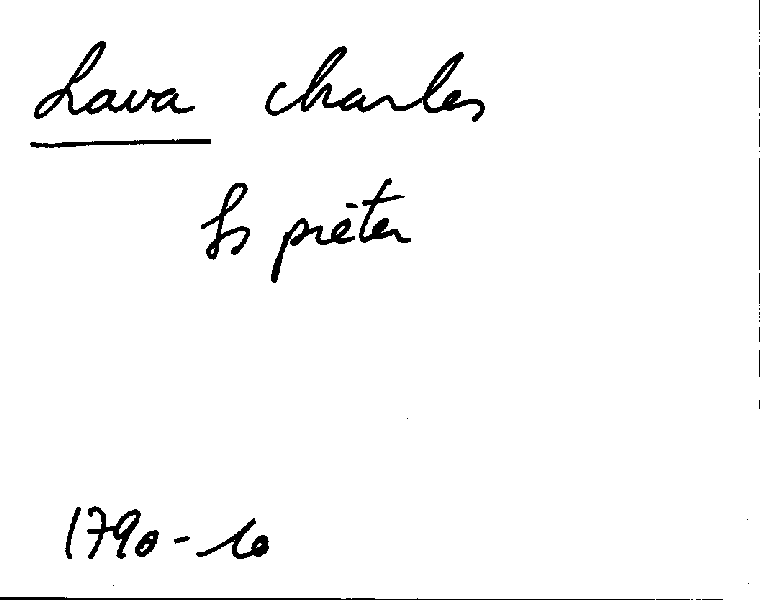 Lava Charles
fs prêter
1790-10